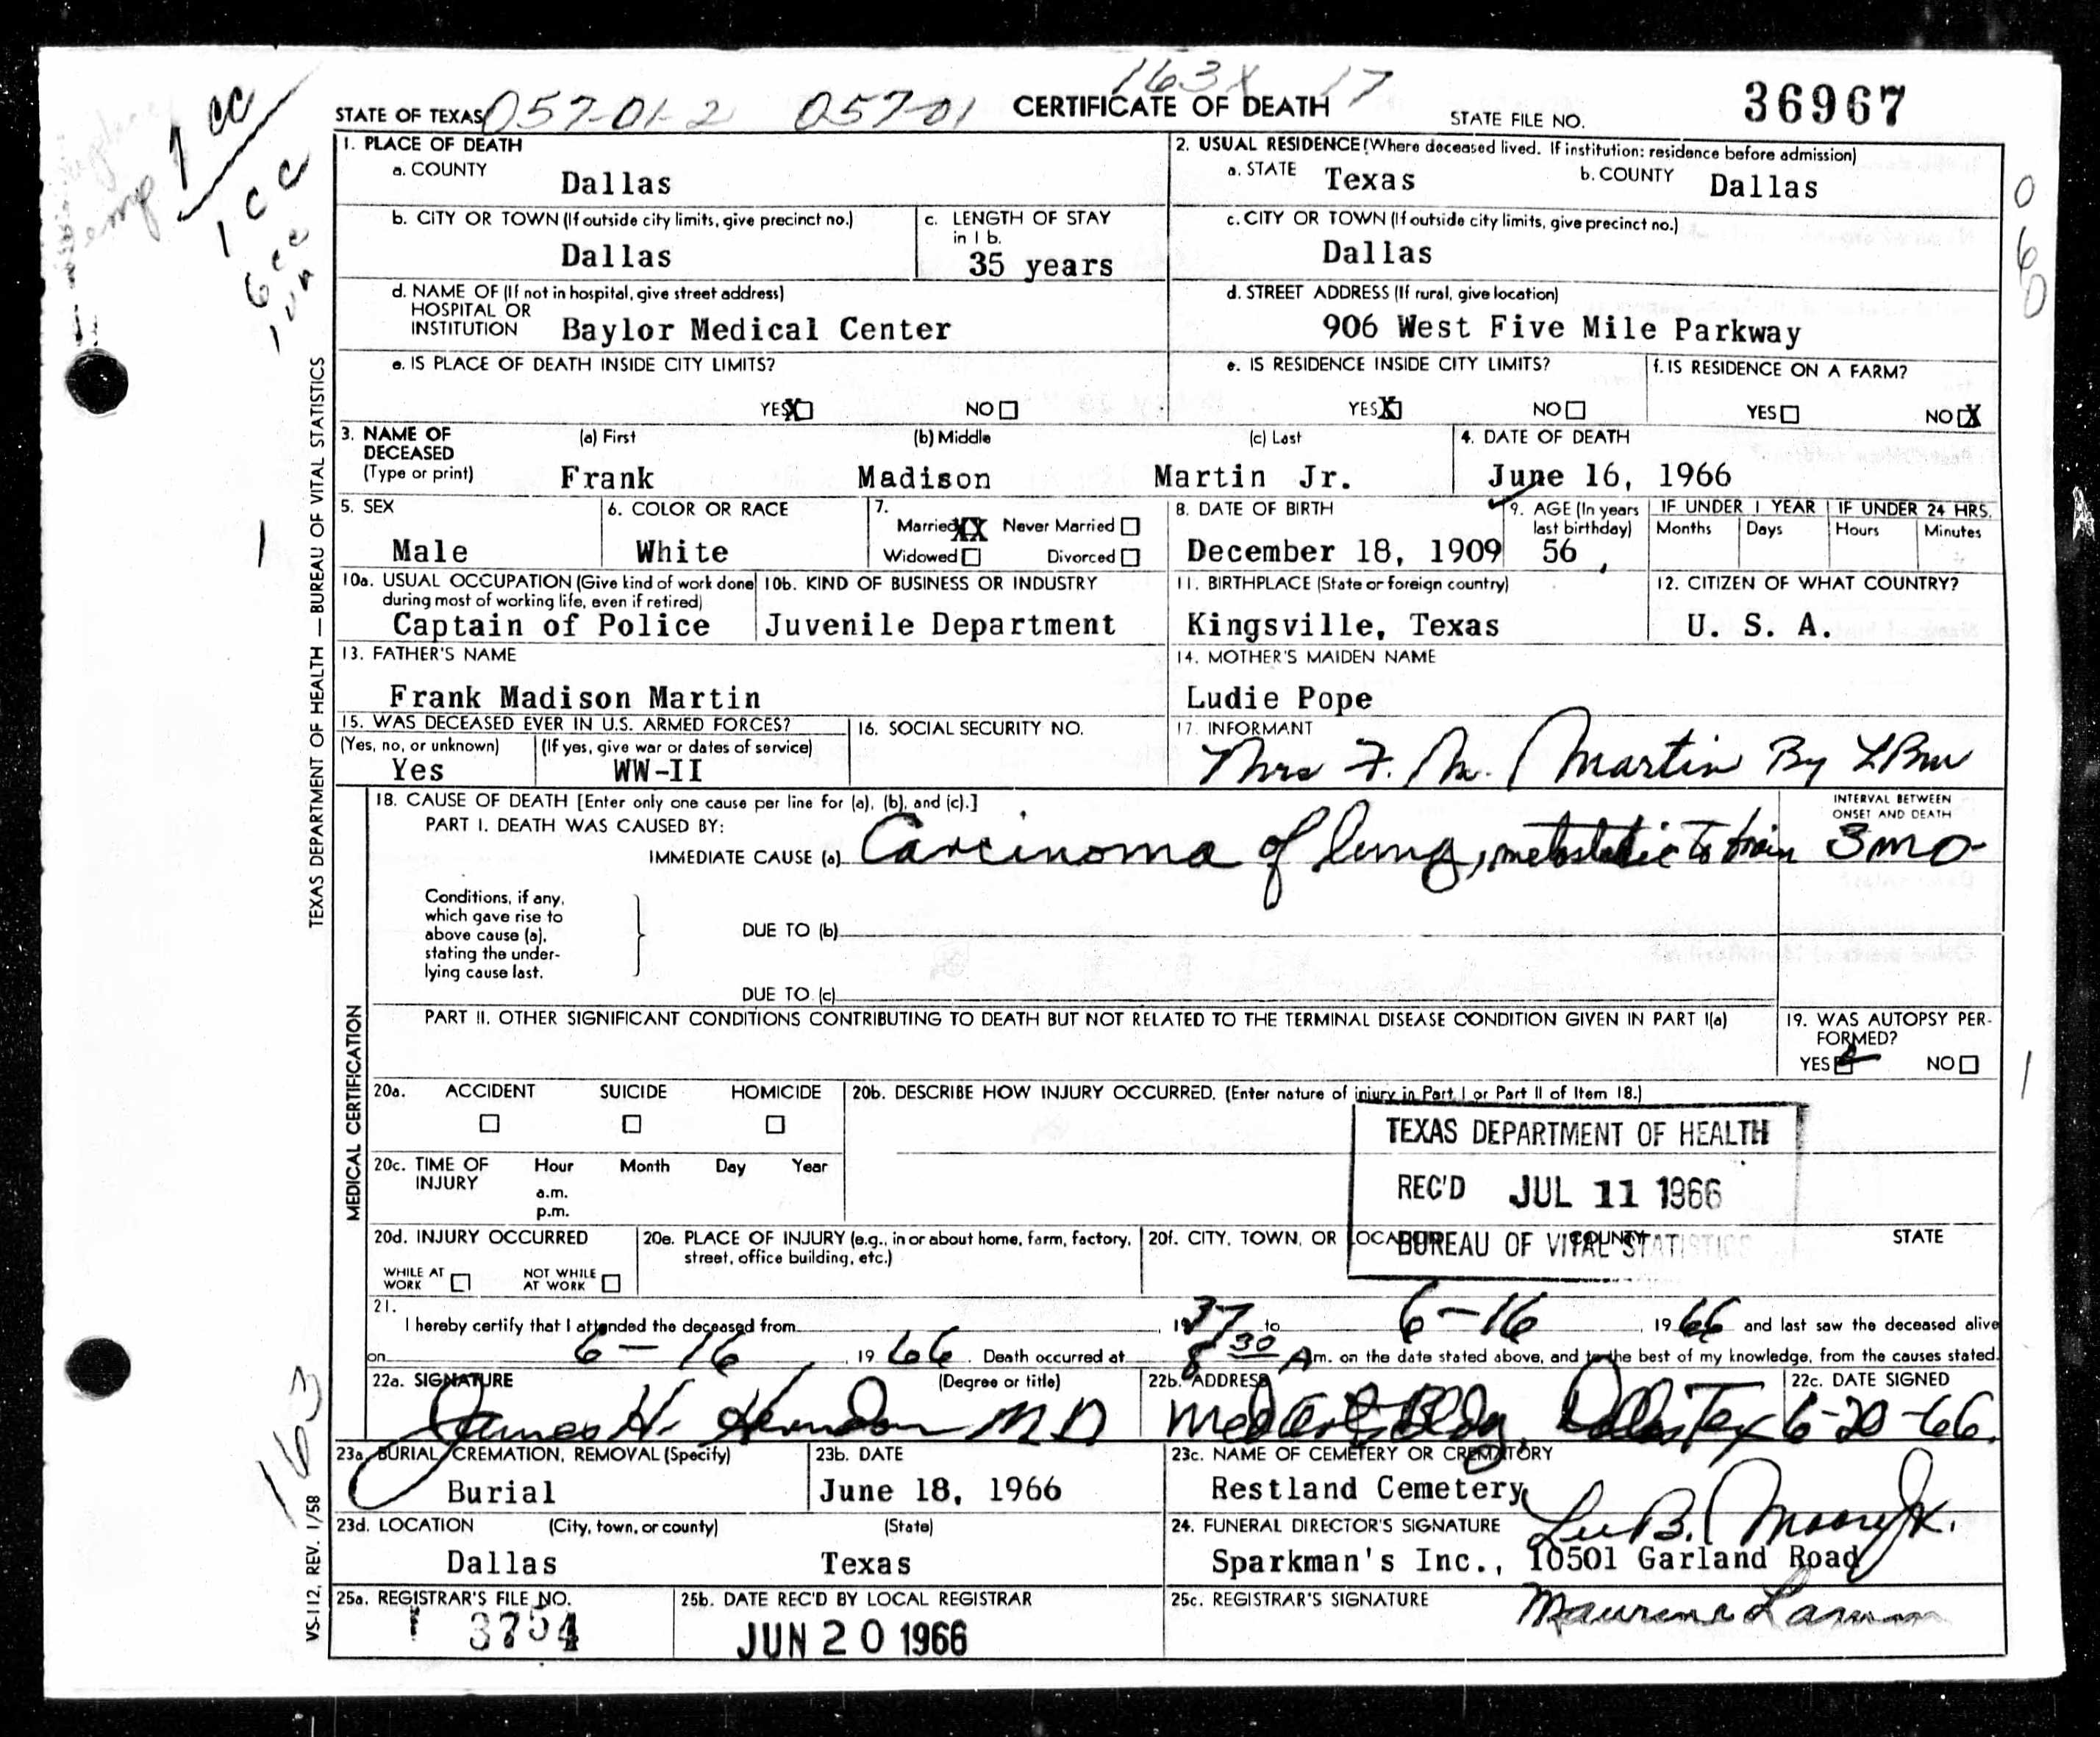 163X 17
STATE OF TEXAS 057-01-2 057-01 CERTIFICATE OF DEATH STATE FILE NO. 36967
1 cc
1 cc
6 cc
060
1. PLACE OF DEATH
a. COUNTY Dallas
b. CITY OR TOWN (If outside city limits, give precinct no.) Dallas
c. LENGTH OF STAY in 1 b. 35 years
d. NAME OF (If not in hospital, give street address) HOSPITAL OR INSTITUTION Baylor Medical Center
e. IS PLACE OF DEATH INSIDE CITY LIMITS?
YES X NO
2. USUAL RESIDENCE (Where deceased lived. If institution: residence before admission)
a. STATE Texas b. COUNTY Dallas
c. CITY OR TOWN (If outside city limits, give precinct no.)
Dallas
d. STREET ADDRESS (If rural, give location)
906 West Five Mile Parkway
e. IS RESIDENCE INSIDE CITY LIMITS?
YES X NO
f. IS RESIDENCE ON A FARM?
YES NO X
3. NAME OF DECEASED (Type or print)
(a) First (b) Middle (c) Last
Frank Madison Martin Jr.
4. DATE OF DEATH
June 16, 1966
5. SEX
Male
6. COLOR OR RACE
White
7.
Married XX Never Married
Widowed Divorced
8. DATE OF BIRTH
December 18, 1909
9. AGE (In years last birthday)
56
IF UNDER 1 YEAR IF UNDER 24 HRS.
Months Days Hours Minutes
10a. USUAL OCCUPATION (Give kind of work done during most of working life, even if retired)
Captain of Police
10b. KIND OF BUSINESS OR INDUSTRY
Juvenile Department
11. BIRTHPLACE (State or foreign country)
Kingsville, Texas
12. CITIZEN OF WHAT COUNTRY?
U. S. A.
13. FATHER'S NAME
Frank Madison Martin
14. MOTHER'S MAIDEN NAME
Ludie Pope
15. WAS DECEASED EVER IN U.S. ARMED FORCES?
(Yes, no, or unknown) (If yes, give war or dates of service)
Yes WW-II
16. SOCIAL SECURITY NO.
17. INFORMANT
Mrs F. M. Martin By LBM
18. CAUSE OF DEATH [Enter only one cause per line for (a), (b), and (c).]
PART I. DEATH WAS CAUSED BY:
IMMEDIATE CAUSE (a) Carcinoma of lung, metastatic to brain
INTERVAL BETWEEN ONSET AND DEATH
3 mo
Conditions, if any, which gave rise to above cause (a), stating the underlying cause last.
DUE TO (b)
DUE TO (c)
PART II. OTHER SIGNIFICANT CONDITIONS CONTRIBUTING TO DEATH BUT NOT RELATED TO THE TERMINAL DISEASE CONDITION GIVEN IN PART I(a)
19. WAS AUTOPSY PERFORMED?
YES NO
20a. ACCIDENT SUICIDE HOMICIDE
20b. DESCRIBE HOW INJURY OCCURRED. (Enter nature of injury in Part I or Part II of Item 18.)
20c. TIME OF INJURY Hour Month Day Year
a.m.
p.m.
TEXAS DEPARTMENT OF HEALTH
REC'D JUL 11 1966
BUREAU OF VITAL STATISTICS
20d. INJURY OCCURRED
WHILE AT WORK NOT WHILE AT WORK
20e. PLACE OF INJURY (e.g., in or about home, farm, factory, street, office building, etc.)
20f. CITY, TOWN, OR LOCATION COUNTY STATE
21.
I hereby certify that I attended the deceased from , 1937 to 6-16, 1966 and last saw the deceased alive
on 6-16, 1966. Death occurred at 8 30 A m. on the date stated above, and to the best of my knowledge, from the causes stated.
22a. SIGNATURE (Degree or title)
James H. Herndon M D
22b. ADDRESS
Med Arts Bldg, Dallas Tex
22c. DATE SIGNED
6-20-66.
23a. BURIAL, CREMATION, REMOVAL (Specify)
Burial
23b. DATE
June 18, 1966
23c. NAME OF CEMETERY OR CREMATORY
Restland Cemetery
23d. LOCATION (City, town, or county) (State)
Dallas Texas
24. FUNERAL DIRECTOR'S SIGNATURE Lee B. Moore Jr.
Sparkman's Inc., 10501 Garland Road
25a. REGISTRAR'S FILE NO.
25b. DATE REC'D BY LOCAL REGISTRAR
JUN 20 1966
25c. REGISTRAR'S SIGNATURE
TEXAS DEPARTMENT OF HEALTH — BUREAU OF VITAL STATISTICS
MEDICAL CERTIFICATION
163
VS-112, REV. 1/58